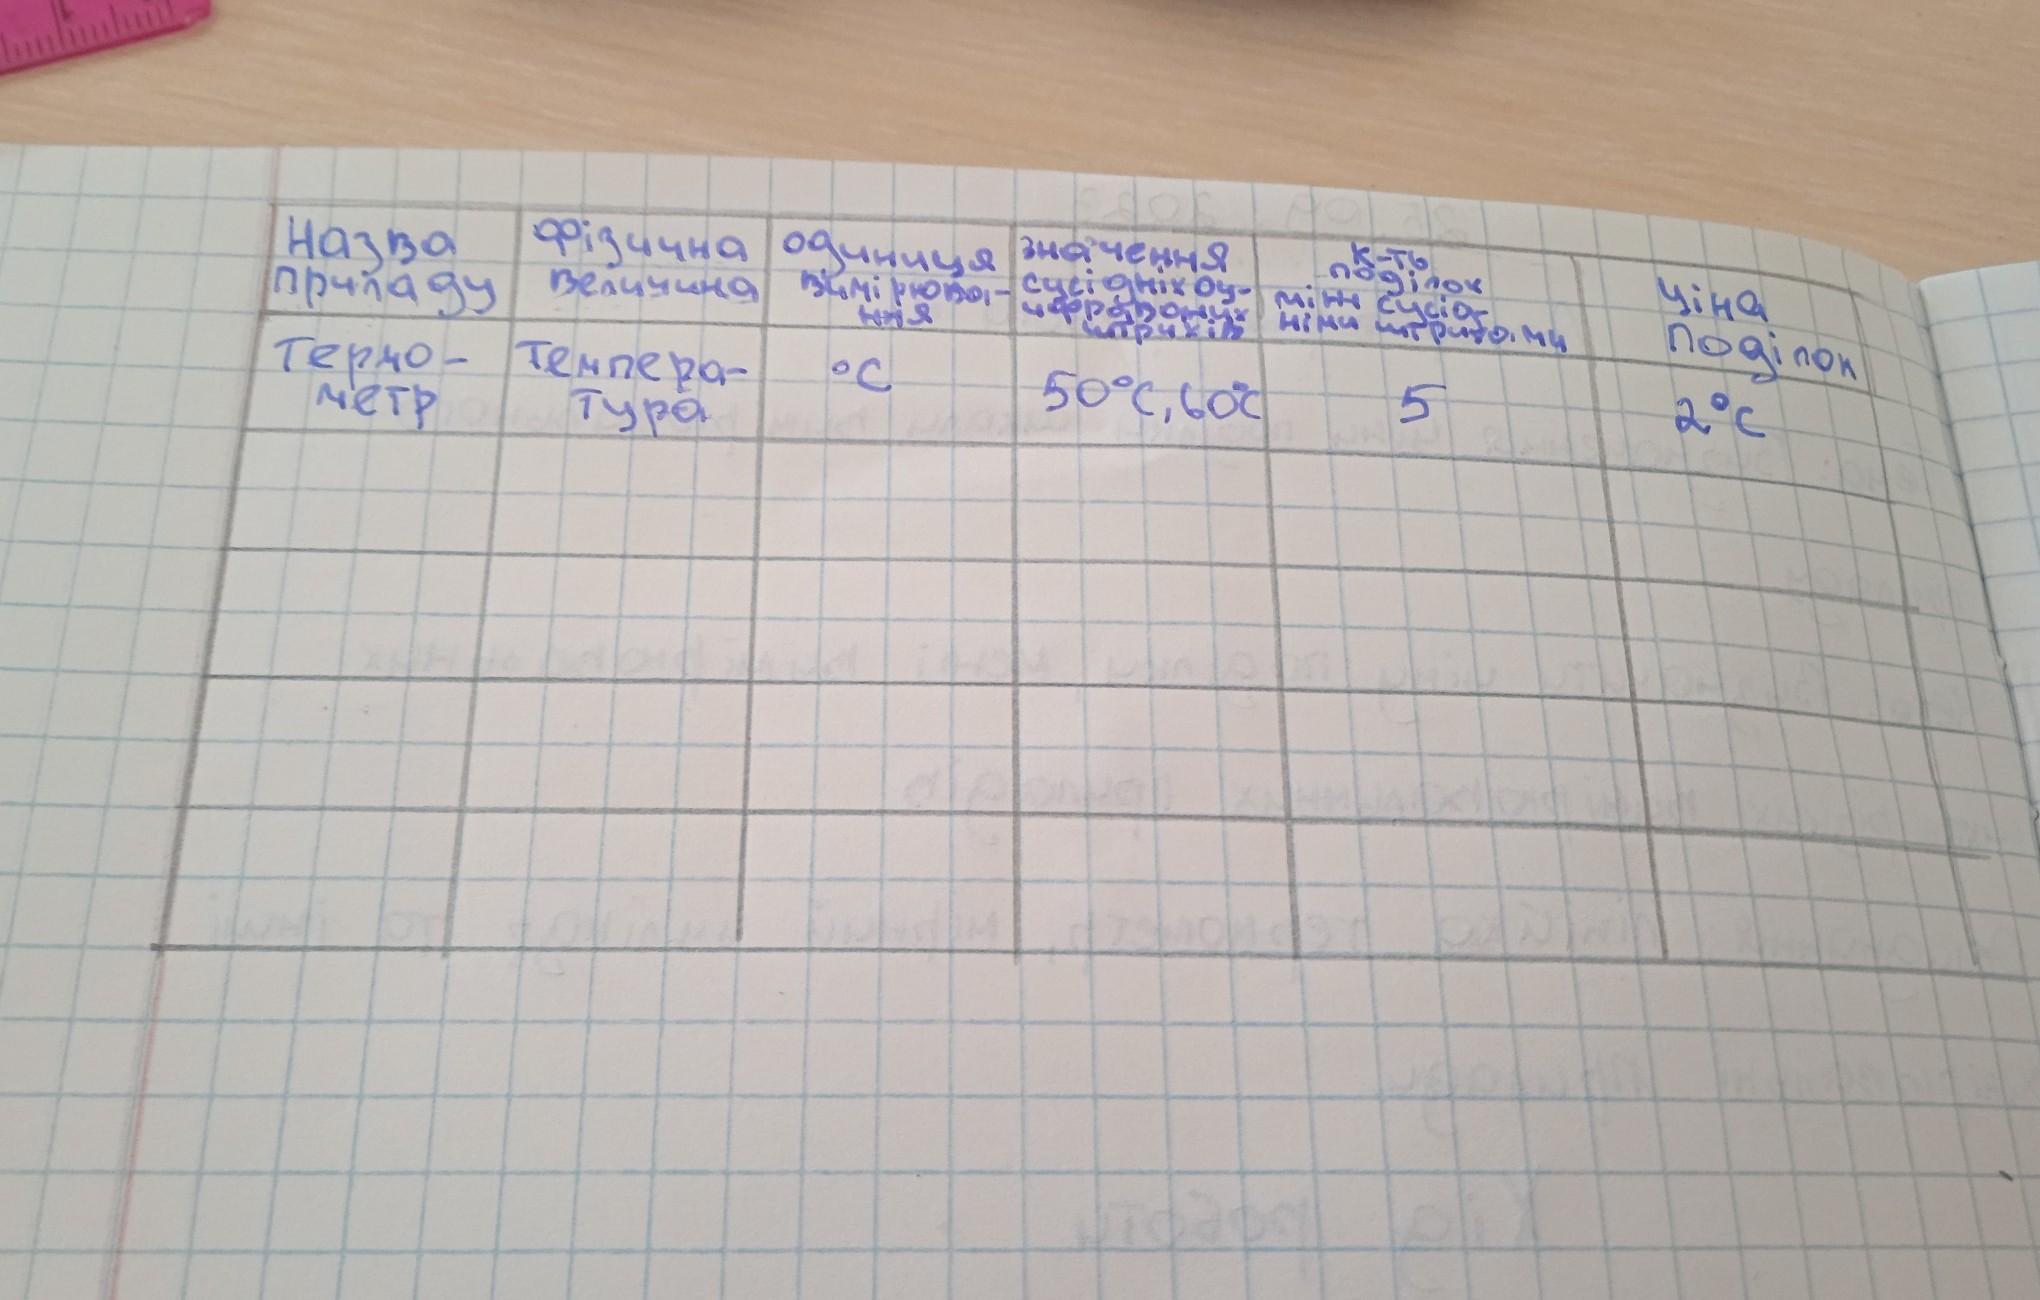 Назва
приладу
Фізична
величина
одиниця
вимірюва-
ння
значення
сусідніх оц-
ифрованих
штрихів
к-ть
поділок
між сусід-
німи штрихами
Ціна
поділок
Термо-
метр
Темпера-
тура
°C
50°C, 60°C
5
2°C